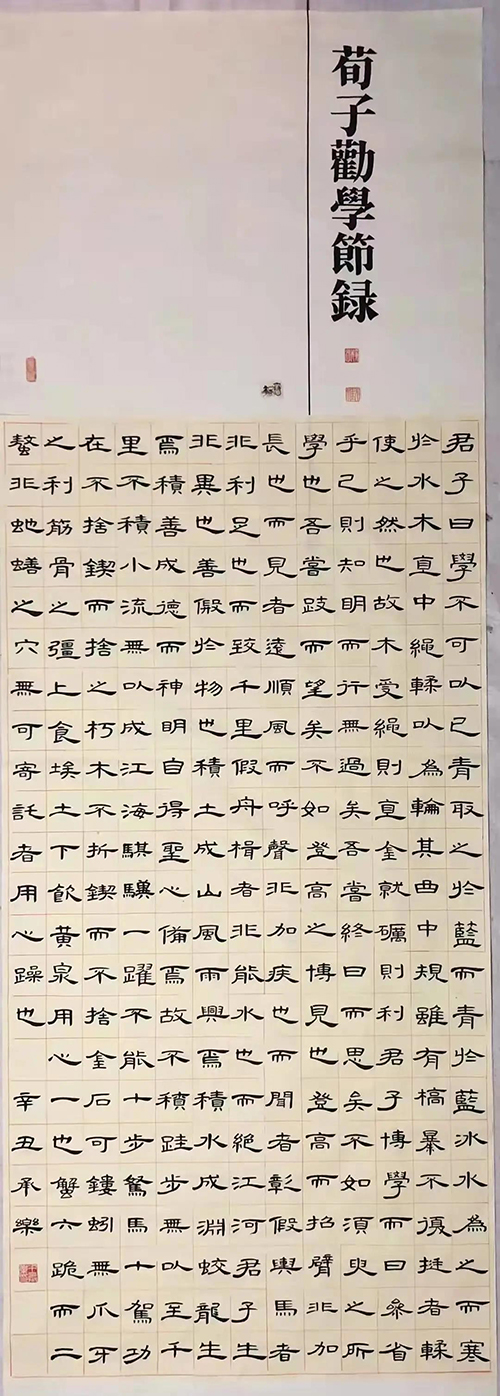 荀子勸學節録
君子曰學不可以已青取之於藍而青於藍冰水為之而寒
於水木直中繩輮以為輪其曲中規雖有槁暴不復挺者輮
使之然也故木受繩則直金就礪則利君子博學而日參省
乎己則知明而行無過矣吾嘗終日而思矣不如須臾之所
學也吾嘗跂而望矣不如登高之博見也登高而招臂非加
長也而見者遠順風而呼聲非加疾也而聞者彰假輿馬者
非利足也而致千里假舟楫者非能水也而絕江河君子生
非異也善假於物也積土成山風雨興焉積水成淵蛟龍生
焉積善成德而神明自得聖心備焉故不積跬步無以至千
里不積小流無以成江海騏驥一躍不能十步駑馬十駕功
在不捨鍥而捨之朽木不折鍥而不捨金石可鏤蚓無爪牙
之利筋骨之彊上食埃土下飲黃泉用心一也蟹六跪而二
螯非虵蟮之穴無可寄託者用心躁也 辛丑承樂